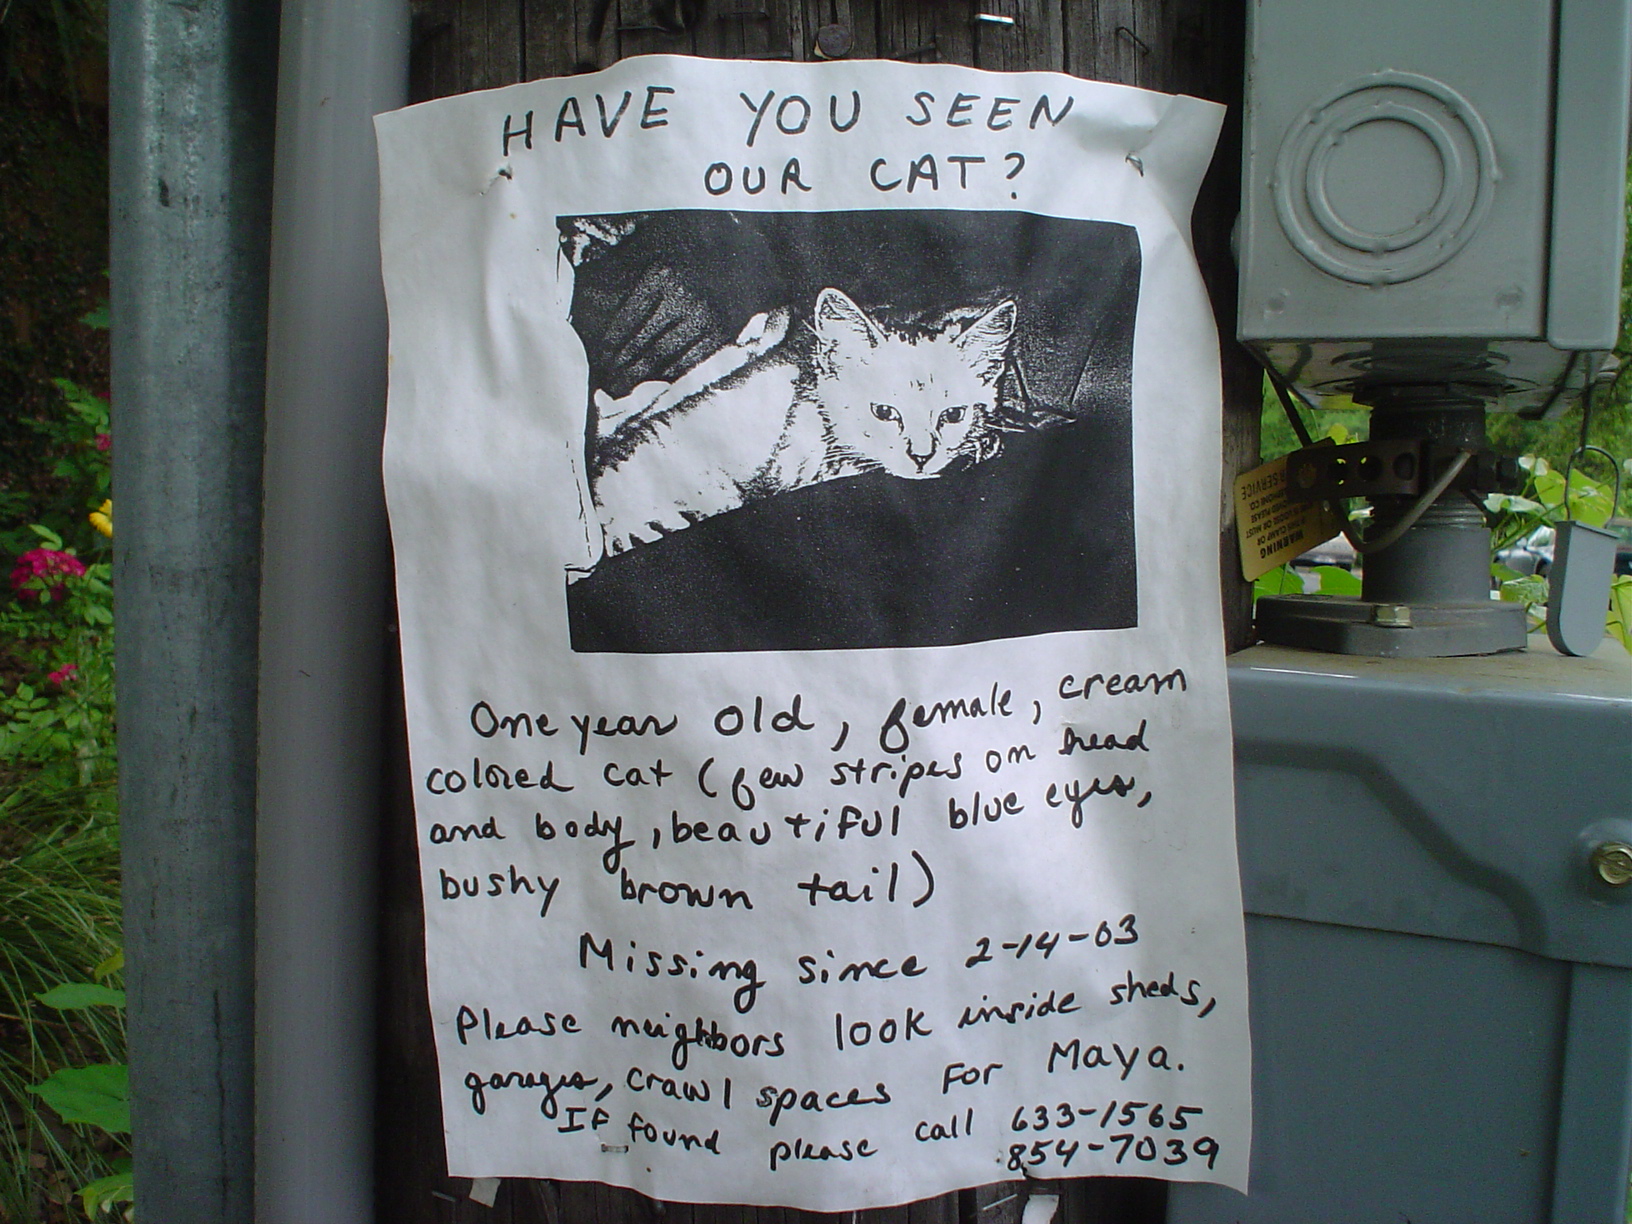 HAVE YOU SEEN
OUR CAT?
One year old, female, cream
colored cat (few stripes on head
and body, beautiful blue eyes,
bushy brown tail)
Missing since 2-14-03
Please neighbors look inside sheds,
garages, crawl spaces for Maya.
If found please call 633-1565
854-7039
WARNING
IF THIS CLAMP OR
SERVICE